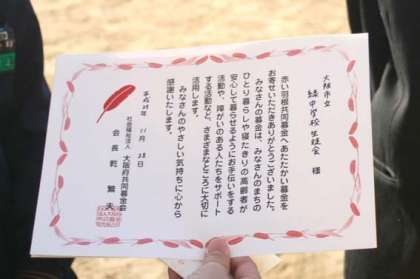 大阪市立
緑中学校生徒会 様
赤い羽根共同募金へあたたかい募金を
お寄せいただきありがとうございました。
みなさんの募金は、みなさんのまちの
ひとり暮らしや寝たきりの高齢者が
安心して暮らせるようにお手伝いをする
活動や、障がいのある人たちをサポート
する活動など、さまざまなところに大切に
活用します。
みなさんのやさしい気持ちに心から
感謝いたします。
11月28日
社会福祉法人 大阪府共同募金会
会長 乾 繁夫